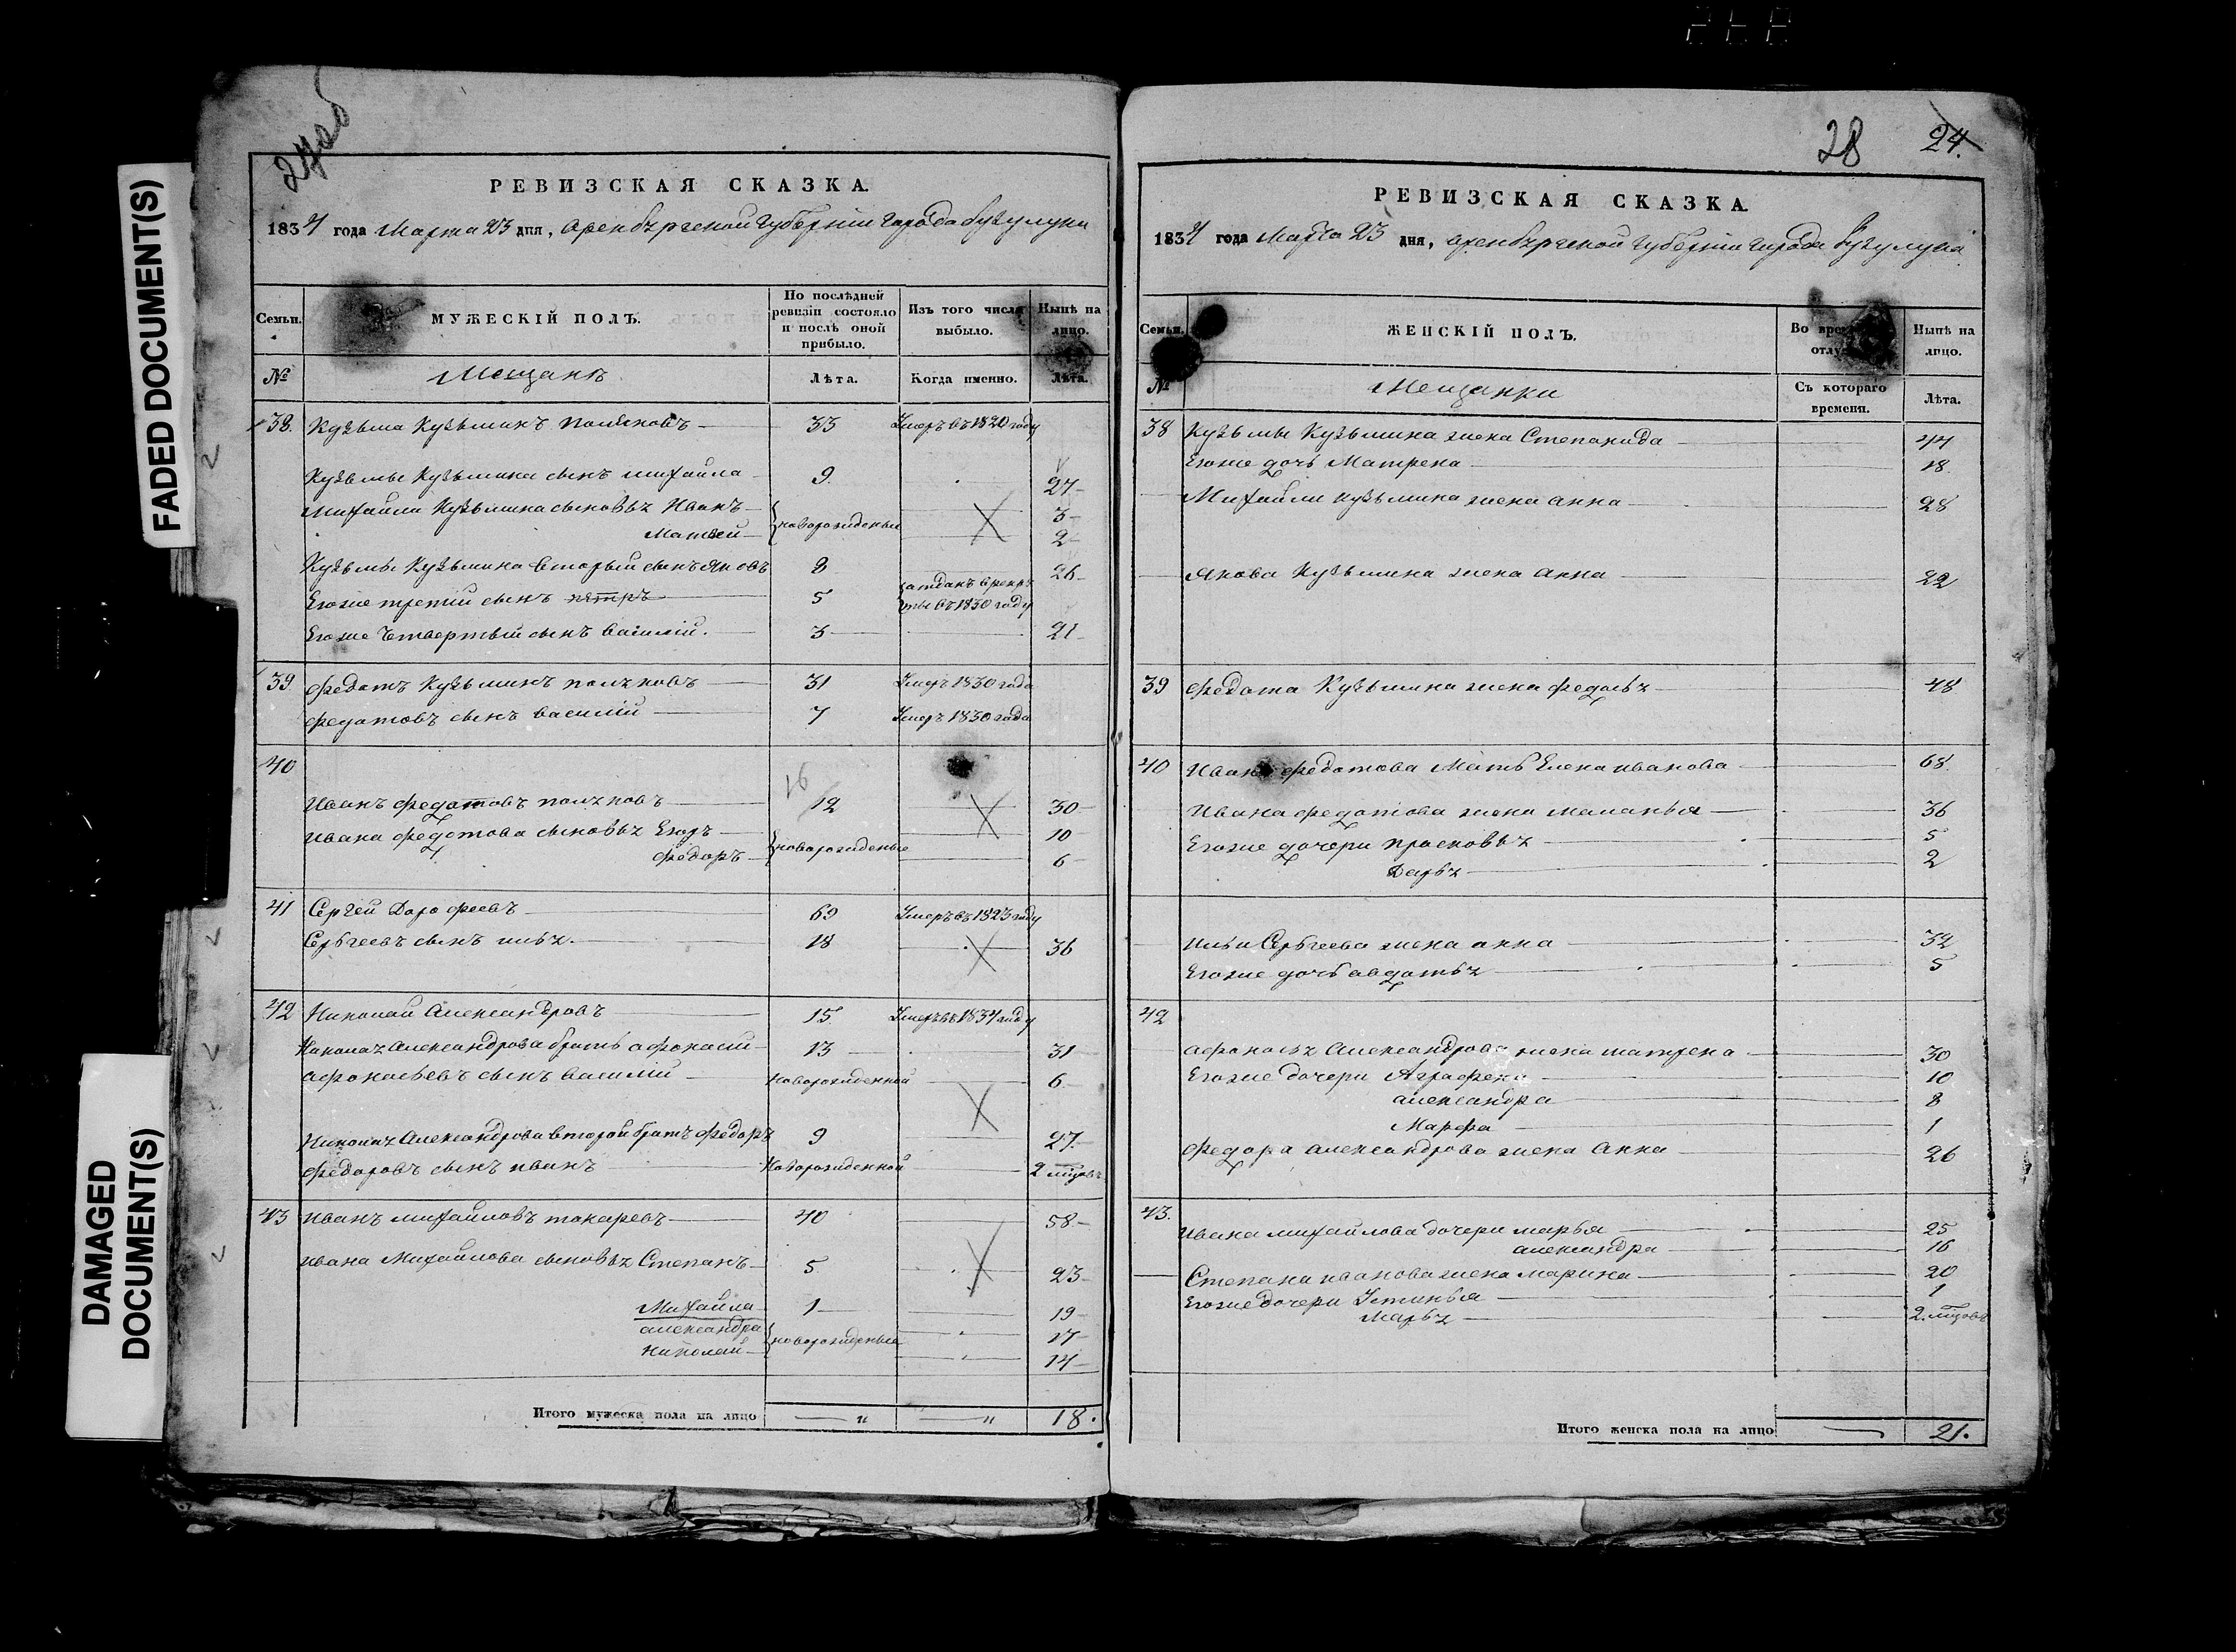 FADED DOCUMENT(S)
DAMAGED
DOCUMENT(S)
27об
РЕВИЗСКАЯ СКАЗКА.
1834 года Марта 23 дня, Оренбургской Губернiи города Бугулуки
Семьи. МУЖЕСКIЙ ПОЛЪ. По послѣдней ревизiи состояло и послѣ оной прибыло. Изъ того числа выбыло. Нынѣ на лицо.
№ Мещанъ Лѣта. Когда именно. Лѣта.
38. Кузьма Кузьминъ 33 Умеръ въ 1820 году
Кузьмы Кузьмина сынъ михайла 9. 27
Михайлы Кузьмина сыновья Иванъ 3
новорожденые
Матвей 2
Кузьмы Кузьмина вторый сынъ яковъ 8 26
Егоже третiй сынъ петръ 5 отданъ врекруты въ 1830 году
Егоже четвертый сынъ василiй. 3 21
39 федотъ Кузьминъ 31 Умеръ 1830 года
федотовъ сынъ василiй 7 Умеръ 1830 года
40
16
Иванъ федотовъ 12 30
Ивана федотова сыновья Егоръ 10
новорожденые
федоръ 6
41 Сергей Дорофеевъ 69 Умеръ въ 1823 году
Сергеевъ сынъ илья. 18 36
42 Николай Александровъ 15 Умеръ въ 1834 году
Николая Александрова братъ афонасiй 13 31
афонасьевъ сынъ василiй новорожденной 6
Николая Александрова второй братъ федоръ 9 27
федоровъ сынъ иванъ новорожденной 2 мцовъ
43 иванъ михайловъ токаревъ 40 58
ивана Михайлова сыновья Степанъ 5 23
Михайла 1 19
александра 17
новорожденые
николай 14
Итого мужеска пола на лицо 18.
28 24.
РЕВИЗСКАЯ СКАЗКА.
1834 года Марта 23 дня, оренбургской губернiи города Бугулуки
Семьи. ЖЕНСКIЙ ПОЛЪ. Во Нынѣ на лицо.
№ Мещанки Съ котораго времени. Лѣта.
38 Кузьмы Кузьмина жена Степанида 44
Егоже дочь Матрена 18
Михайлы Кузьмина жена анна 28
Якова Кузьмина жена анна 22
39 федота Кузьмина жена федосья 48
40 Ивана федотова Мать Елена иванова 68
Ивана федотова жена меланья 36
Егоже дочери прасковья 5
Дарья 2
ильи Сергеева жена анна 32
Егоже дочь авдотья 5
42
афонасья Александрова жена матрена 30
Егоже дочери Аграфена 10
александра 8
Марфа 1
федора александрова жена Анна 26
43. ивана михайлова дочери марья 25
александра 16
Степана иванова жена марина 20
Егоже дочери Устинья 1
Марья 2. мцовъ
Итого женска пола на лицо 21.